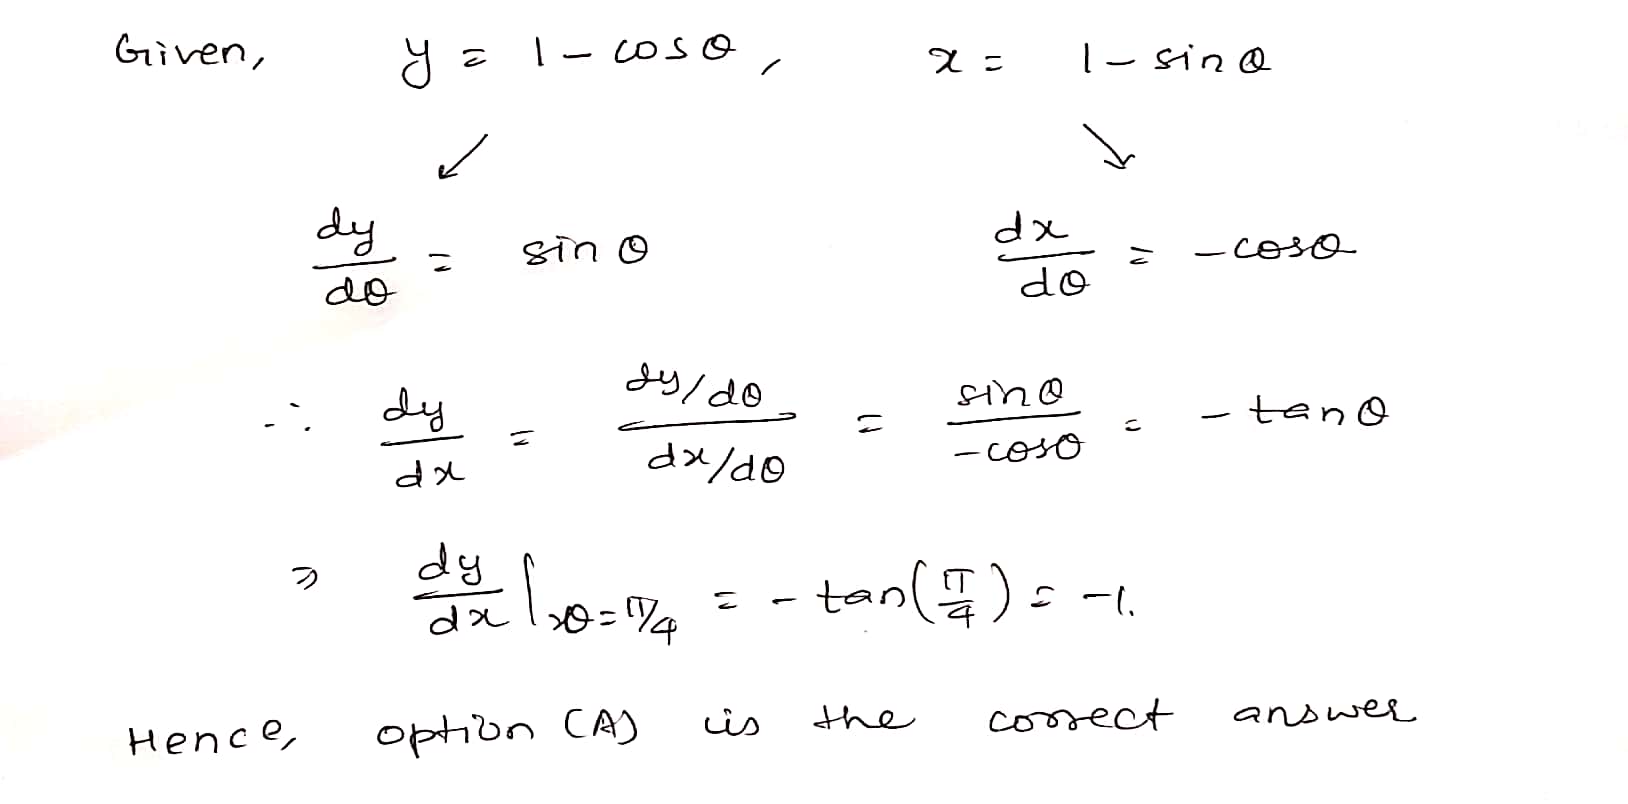 Given, y = 1 - cosθ, x = 1 - sinθ
dy/dθ = sinθ dx/dθ = -cosθ
∴ dy/dx = (dy/dθ)/(dx/dθ) = sinθ/-cosθ = -tanθ
⇒ dy/dx |θ=π/4 = -tan(π/4) = -1.
Hence, option (A) is the correct answer